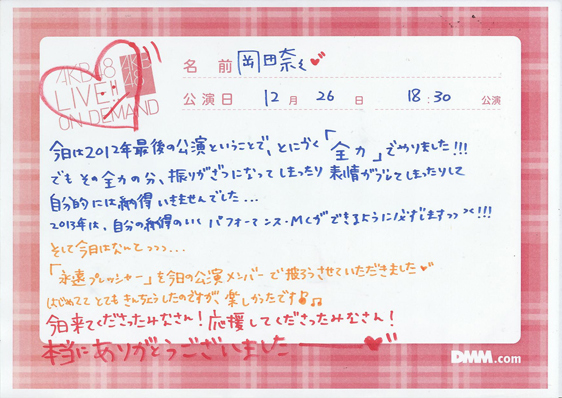 AKB48
LIVE!!
ON DEMAND
AKB
48
名前 岡田奈々
公演日 12月 26日 18:30 公演
今日は2012年最後の公演ということで、とにかく「全力」でやりました!!!
でもその全力の分、振りがざつになってしまったり 表情がブレてしまったりして
自分的には納得いきませんでした...
2013年は、自分の納得のいく パフォーマンス・MCができるように必ずしますっっ!!!
そして今日はなんてっっっ...
「永遠プレッシャー」を今日の公演メンバーで披ろうさせていただきました
はじめてで とてもきんちょうしたのですが、楽しかったです♫♪
今日来てくださったみなさん!応援してくださったみなさん!
本当にありがとうございました
DMM.com